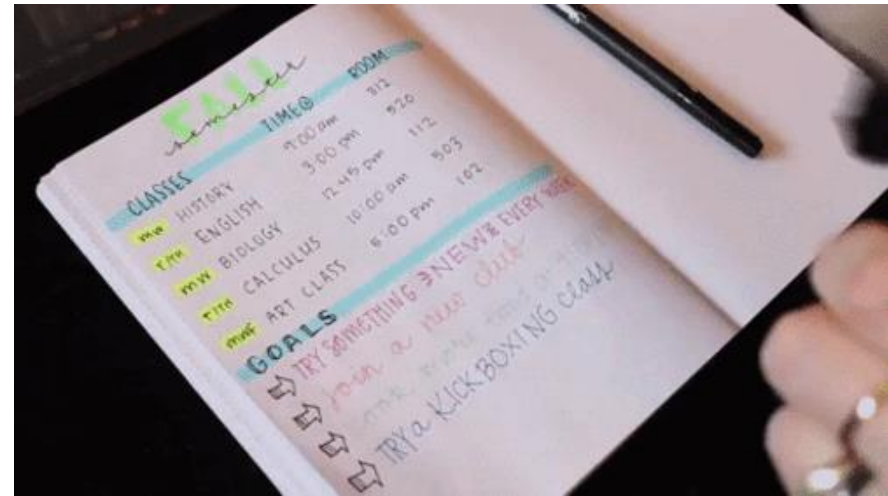 FALL
semester
CLASSES TIME@ ROOM
MW HISTORY 9:00 am 312
T/TH ENGLISH 3:00 pm 520
MW BIOLOGY 12:45 pm 112
T/TH CALCULUS 10:00 am 503
MWF ART CLASS 5:00 pm 102
GOALS
TRY SOMETHING NEW EVERY WEEK
join a new club
more
TRY a KICKBOXING class